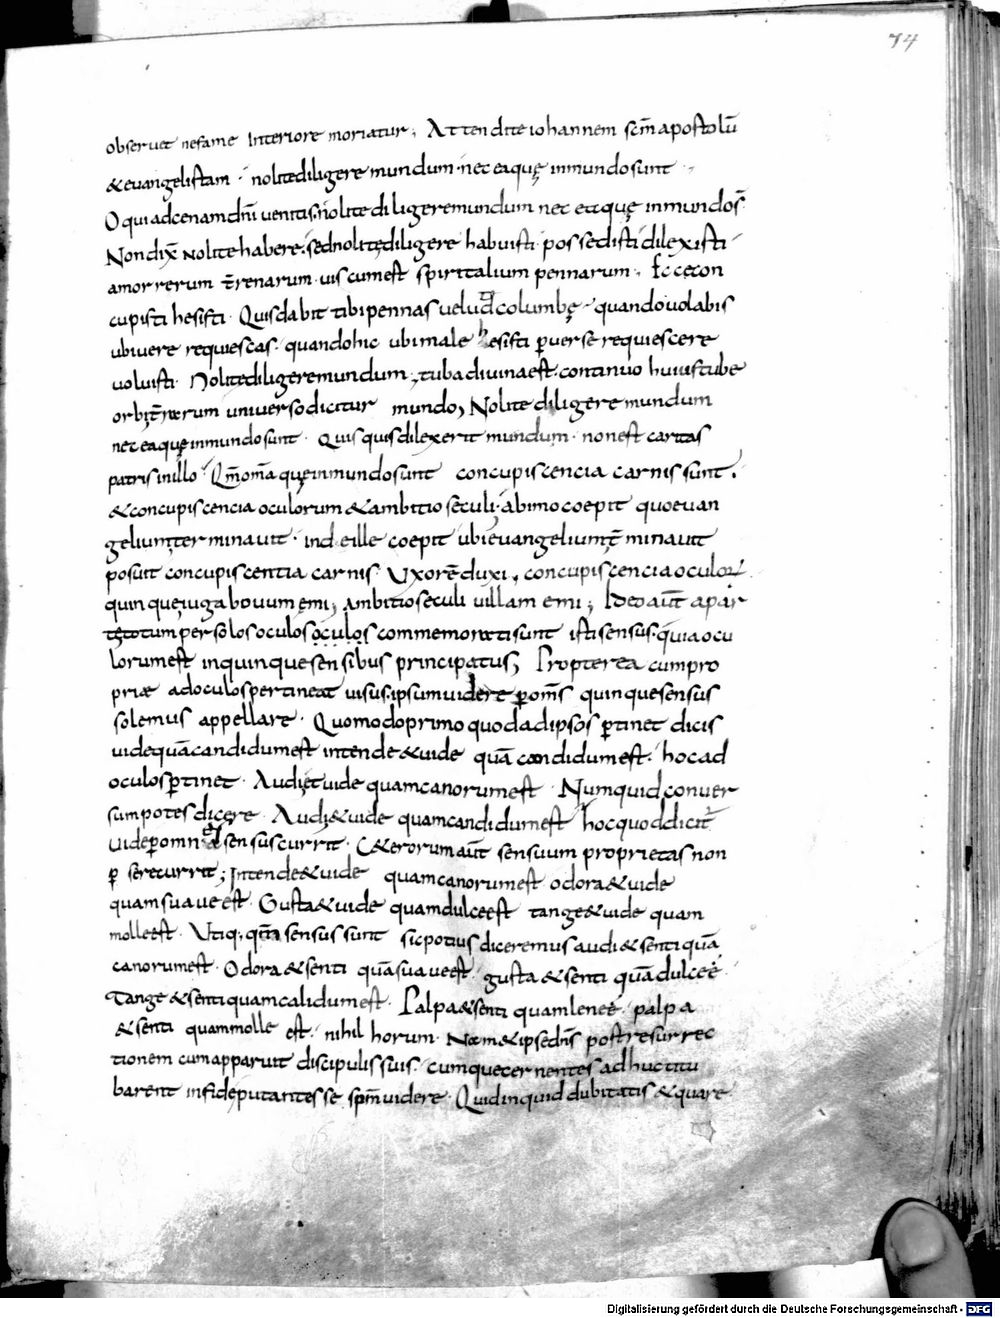 74
obseruet nefame Interiore moriatur; Attendite iohannem scm̄ apostolū
& euangelistam · nolite diligere mundum · nec ea quę in mundo sunt ·
O qui ad cenam dn̄i uentis · nolite diligere mundum nec ea quę in mundo s̄
Non dix̄ nolite habere · sed nolite diligere habuisti possedisti dilexisti
amor rerum t̄renarum uiscum est spiritalium pennarum · Ecce con
cupisti hesisti · Quis dabit tibi pennas uelud columbę · quando uolabis
ubi uere requiescas · quando hic ubi male hesisti puerse requiescere
uoluisti · Nolite diligere mundum; tuba diuina est · continuo huius tube
orbi t̄rarum uniuerso dicitur mundo, Nolite diligere mundum
nec ea quę in mundo sunt · Quis quis dilexerit mundum · non est caritas
patris in illo · Qm̄ om̄a quę in mundo sunt concupiscencia carnis sunt ·
& concupiscencia oculorum & ambitio seculi · ab imo coepit quo euan
gelium terminauit · inde ille coepit ubi euangelium t̄minauit
posuit concupiscentia carnis · Uxorē duxi, concupiscencia oculor
quinque iuga bouum emi, ambitio seculi uillam emi; Ideo aūt a par
te totum per solos oculos oculos commemorati sunt isti sensus · quia ocu
lorum est in quinque sensibus principatus; Propterea cum pro
priæ ad oculos pertineat uisus, ipsum uidere p om̄s quinque sensus
solemus appellare · Quomodo primo quod ad ipsos ptinet dicis
uide quā candidum est intende & uide quā candidum est · hoc ad
oculos ptinet · Audi et uide quam canorum est · Numquid conuer
sum potes dicere · Audi & uide quam candidum est hoc quod dicit̄
uide p omnes sensus currit · C&erorum aūt sensuum proprietas non
p se recurrit; Intende & uide quam canorum est odora & uide
quam suaue est · Gusta & uide quam dulce est tange & uide quam
molle est · Utiq; qm̄ sensus sunt sic potius diceremus audi & senti quā
canorum est · Odora & senti quā suaue est · gusta & senti quā dulce ē ·
Tange & senti quam calidum est · Palpa & senti quam lene ē · palpa
& senti quam molle est · nihil horum · Nam & ipse dn̄s post resurrec
tionem cum apparuit discipulis suis · cumque cernentes adhuc titu
barent in fide putantes se sp̄m uidere · Quid inquid dubitatis & quare
Digitalisierung gefördert durch die Deutsche Forschungsgemeinschaft - DFG